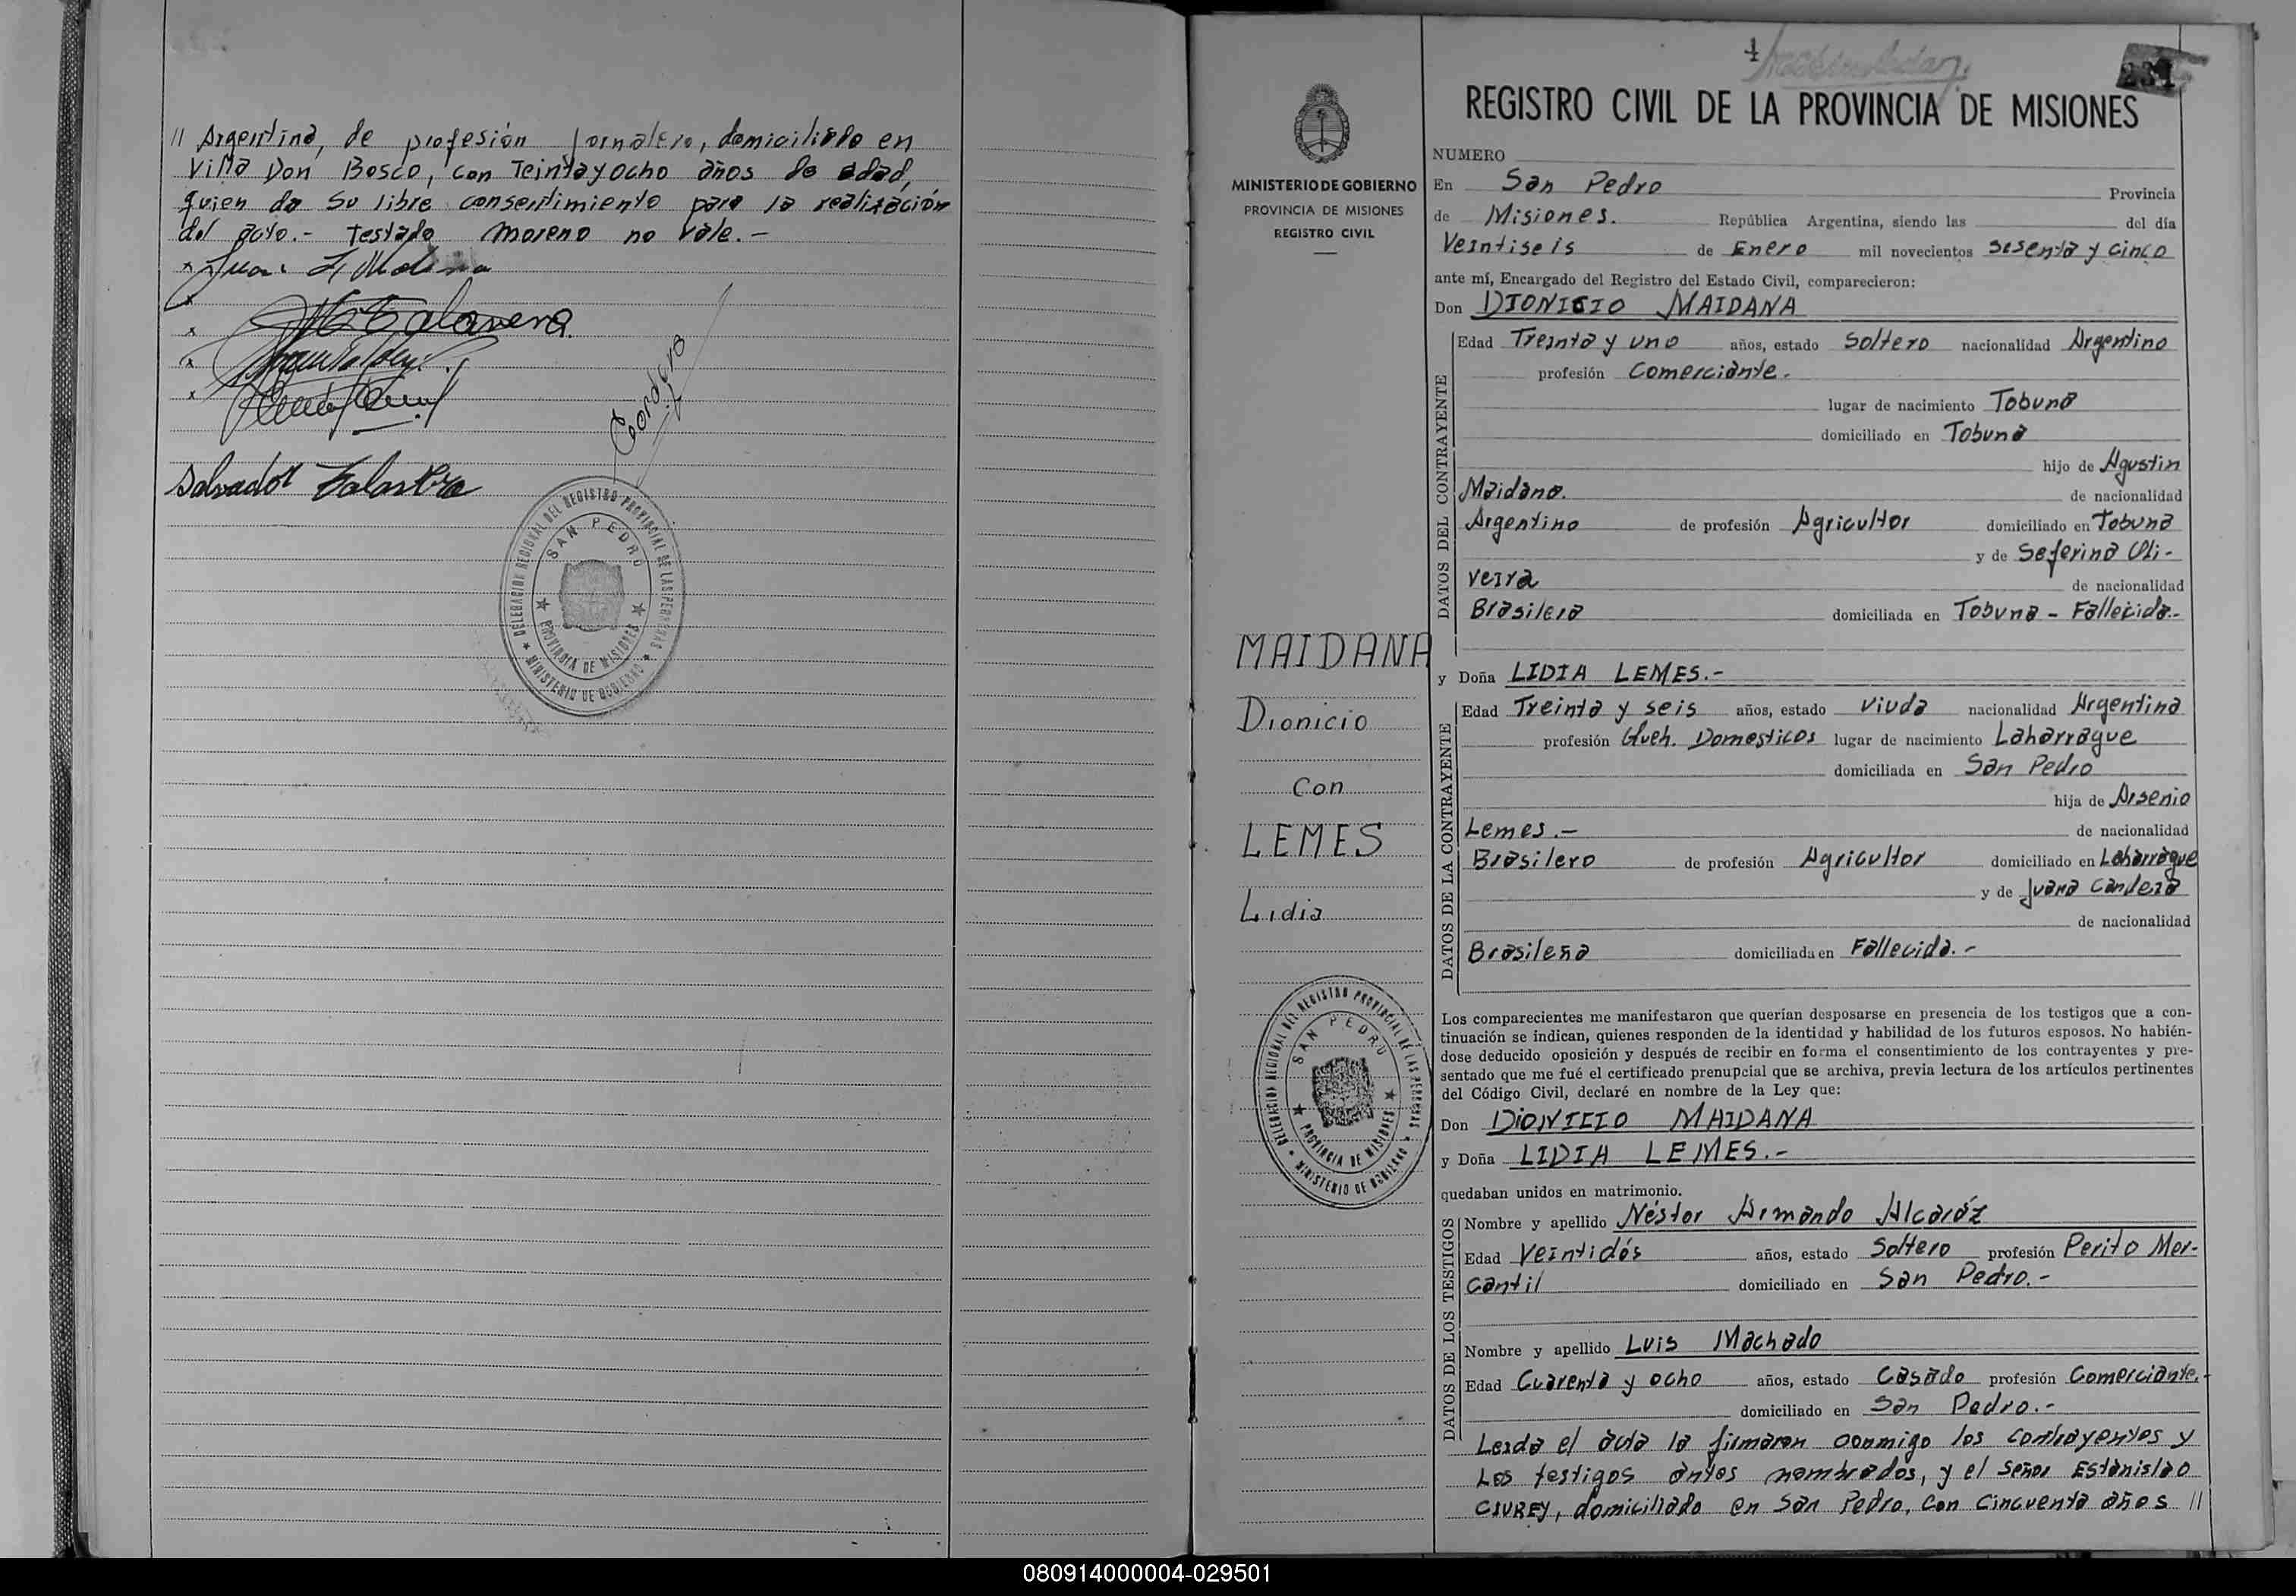 // Argentina, de profesión Jornalero, domiciliado en
Villa Don Bosco, con Teintayocho años de edad,
quien da su libre consentimiento para la realización
del acto.- Testado Moreno no vale.-
Salvador
Cordero
DELEGACION REGIONAL DEL REGISTRO PROVINCIAL DE LAS PERSONAS
SAN PEDRO
PROVINCIA DE MISIONES
MINISTERIO DE GOBIERNO
MINISTERIO DE GOBIERNO
PROVINCIA DE MISIONES
REGISTRO CIVIL
MAIDANA
Dionicio
Con
LEMES
Lidia
DELEGACION REGIONAL DEL REGISTRO PROVINCIAL DE LAS PERSONAS
SAN PEDRO
PROVINCIA DE MISIONES
MINISTERIO DE GOBIERNO
4
231
REGISTRO CIVIL DE LA PROVINCIA DE MISIONES
NUMERO
En San Pedro Provincia
de Misiones. República Argentina, siendo las del día
Veintiseis de Enero mil novecientos sesenta y cinco
ante mí, Encargado del Registro del Estado Civil, comparecieron:
Don DIONICIO MAIDANA
DATOS DEL CONTRAYENTE
Edad Treinta y uno años, estado Soltero nacionalidad Argentino
profesión Comerciante.
lugar de nacimiento Tobuna
domiciliado en Tobuna
hijo de Agustin
Maidana. de nacionalidad
Argentino de profesión Agricultor domiciliado en Tobuna
y de Seferina Oli-
veira de nacionalidad
Brasilera domiciliada en Tobuna - Fallecida.-
y Doña LIDIA LEMES.-
DATOS DE LA CONTRAYENTE
Edad Treinta y seis años, estado Viuda nacionalidad Argentina
profesión Queh. Domesticos lugar de nacimiento Laharrague
domiciliada en San Pedro
hija de Arsenio
Lemes.- de nacionalidad
Brasilero de profesión Agricultor domiciliado en Laharrague
y de Juana Candeza
de nacionalidad
Brasileña domiciliada en Fallecida.-
Los comparecientes me manifestaron que querían desposarse en presencia de los testigos que a con-
tinuación se indican, quienes responden de la identidad y habilidad de los futuros esposos. No habién-
dose deducido oposición y después de recibir en forma el consentimiento de los contrayentes y pre-
sentado que me fué el certificado prenupcial que se archiva, previa lectura de los artículos pertinentes
del Código Civil, declaré en nombre de la Ley que:
Don DiONICIO MAIDANA
y Doña LIDIA LEMES.-
quedaban unidos en matrimonio.
DATOS DE LOS TESTIGOS
Nombre y apellido Néstor Armando Alcaráz
Edad Veintidós años, estado Soltero profesión Perito Mer-
cantil domiciliado en San Pedro.-
Nombre y apellido Luis Machado
Edad Cuarenta y ocho años, estado Casado profesión Comerciante.
domiciliado en San Pedro.-
Leida el acta la firmaron conmigo los contrayentes y
Los testigos antes nombrados, y el señor Estanislao
CIUREY, domiciliado en San Pedro, con cincuenta años //
080914000004-029501